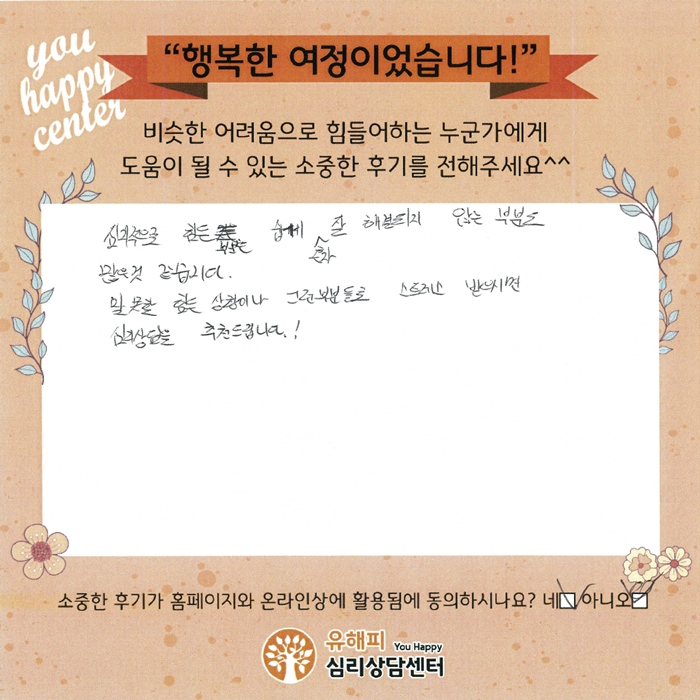 you
happy
center
“행복한 여정이었습니다!”
비슷한 어려움으로 힘들어하는 누군가에게
도움이 될 수 있는 소중한 후기를 전해주세요^^
심리적으로 힘든 부분은 쉽게 잘 해분되지 않는 부분도
많은것 같습니다.
말 못할 힘든 상황이나 그런부분들로 스트레스 받으시면
심리상담을 추천드립니다.!
소중한 후기가 홈페이지와 온라인상에 활용됨에 동의하시나요? 네 아니오
유해피 You Happy
심리상담센터